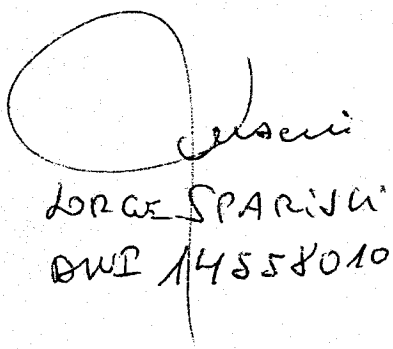 JORGE SPARISCI
DNI 14558010